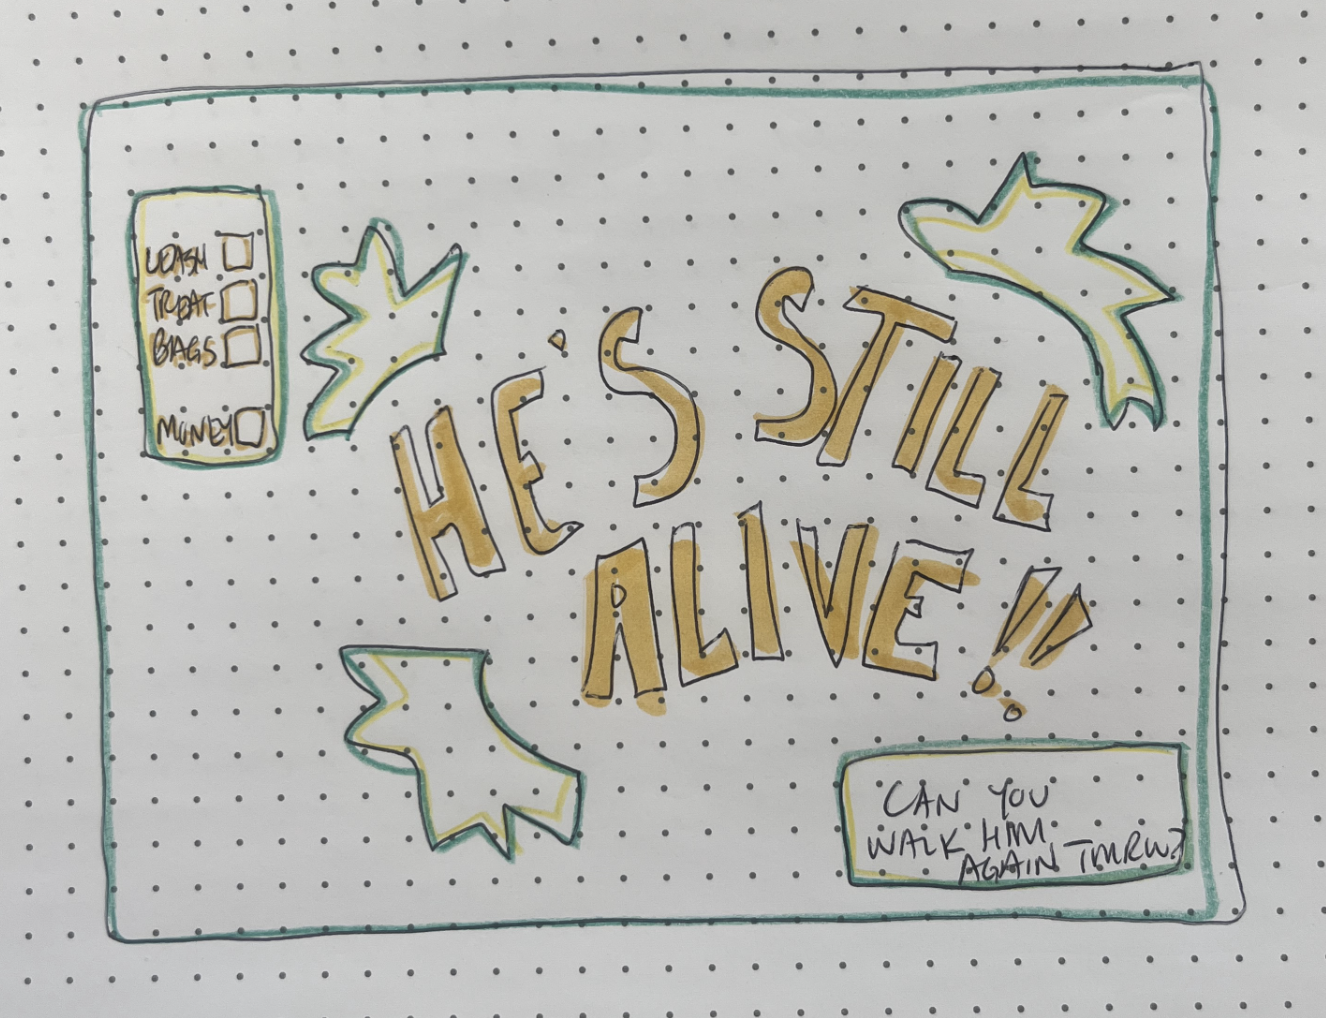 LEASH
TREAT
BAGS
MONEY
HE'S STILL
ALIVE!!
CAN YOU
WALK HIM
AGAIN TMRW?